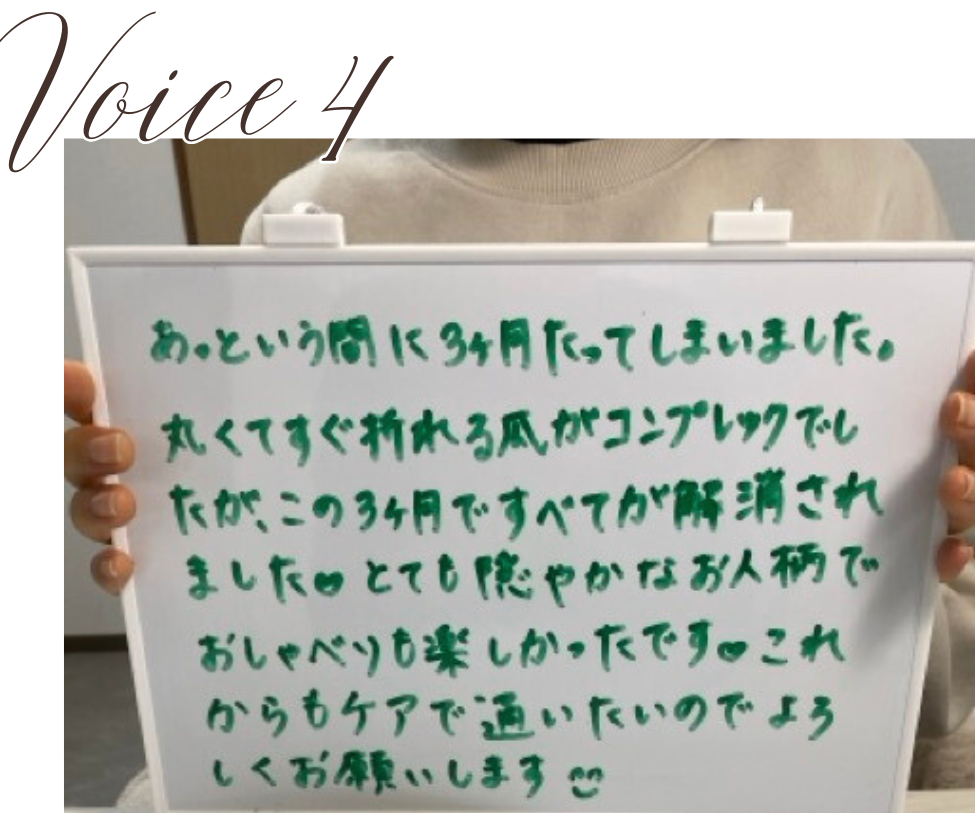 Voice 4
あっという間に3ヶ月たってしまいました。
丸くてすぐ折れる爪がコンプレックでし
たが、この3ヶ月ですべてが解消され
ました♥とても穏やかなお人柄で
おしゃべりも楽しかったです♥これ
からもケアで通いたいのでよろ
しくお願いします☺